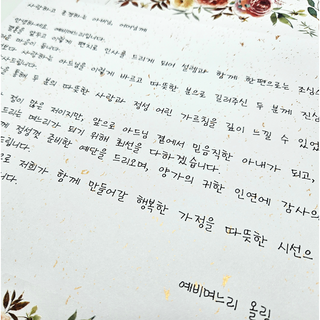 사랑하고 존경하는 아버님, 어머님께
안녕하세요. 예비며느리입니다.
펜을 들고 이렇게 편지로 인사를 드리게 되어 설렘과 함께 한편으로는 조심스
마음이 듭니다.
사랑하는 아드님을 이렇게 바르고 따뜻한 분으로 길러주신 두 분께 진심
통해 두 분의 따뜻한 사랑과 정성 어린 가르침을 깊이 느낄 수 있었
점이 많은 저이지만, 앞으로 아드님 곁에서 믿음직한 아내가 되고,
드리는 며느리가 되기 위해 최선을 다하겠습니다.
정성껏 준비한 예단을 드리오며, 양가의 귀한 인연에 감사의
드립니다.
으로 저희가 함께 만들어갈 행복한 가정을 따뜻한 시선으
니다.
예비며느리 올림